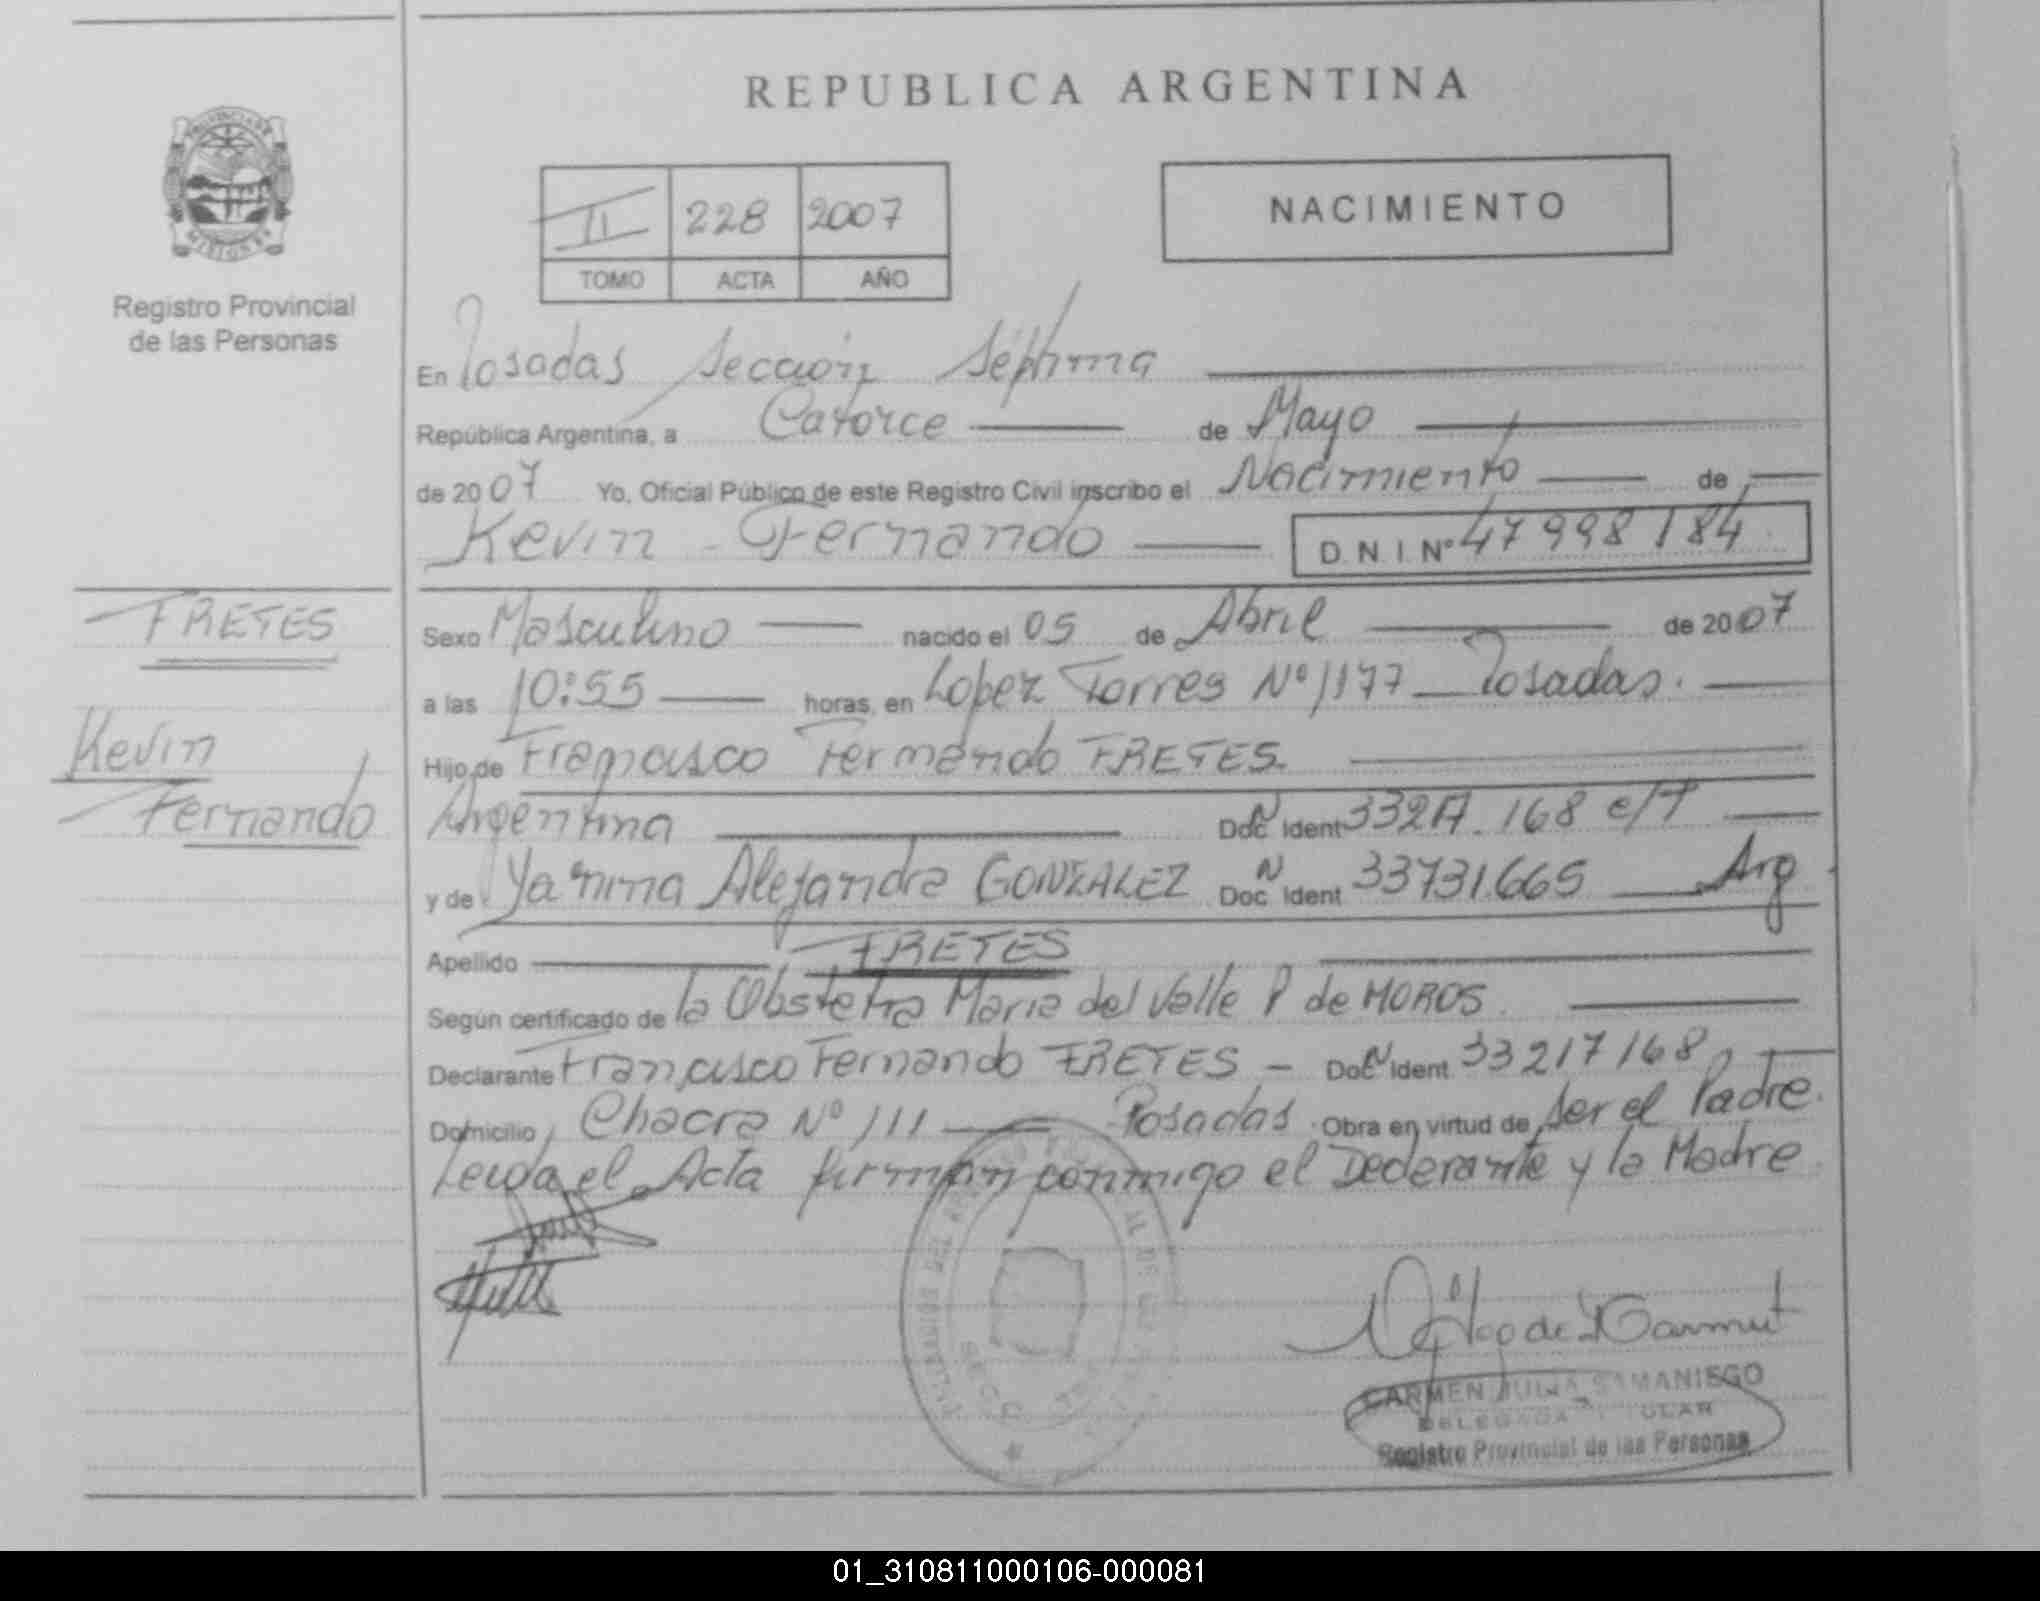 REPUBLICA ARGENTINA
PROVINCIA DE MISIONES
Registro Provincial
de las Personas
II 228 2007
TOMO ACTA AÑO
NACIMIENTO
En Posadas Sección Séptima
República Argentina, a Catorce de Mayo
de 2007 Yo, Oficial Público de este Registro Civil inscribo el Nacimiento de
Kevin Fernando D.N.I. Nº 47998184
FRETES
Kevin
Fernando
Sexo Masculino nacido el 05 de Abril de 2007
a las 10:55 horas, en Lopez Torres Nº 1177 Posadas.
Hijo de Francisco Fernando FRETES.
Argentina Doc N Ident 33217.168 e/T
y de Yanina Alejandra GONZALEZ Doc N Ident 33731665 Arg
Apellido FRETES
Según certificado de la Obstetra Maria del Valle P de MOROS.
Declarante Francisco Fernando FRETES - Doc N Ident 33217168
Domicilio Chacra Nº 111 Posadas Obra en virtud de ser el Padre.
Leida el Acta firman conmigo el Declarante y la Madre
CARMEN JULIA SAMANIEGO
DELEGADA TITULAR
Registro Provincial de las Personas
01_310811000106-000081